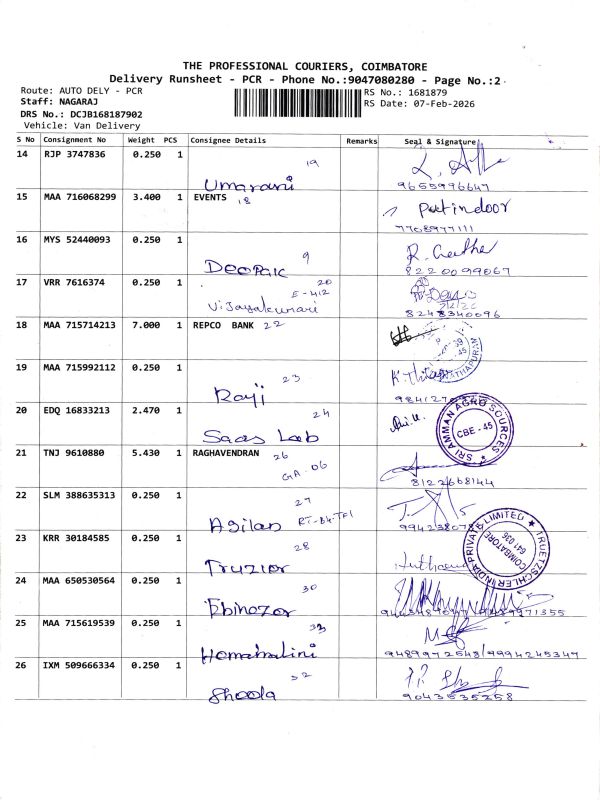 THE PROFESSIONAL COURIERS, COIMBATORE
Delivery Runsheet - PCR - Phone No.:9047080280 - Page No.:2
Route: AUTO DELY - PCR
RS No.: 1681879
Staff: NAGARAJ
RS Date: 07-Feb-2026
DRS No.: DCJB168187902
Vehicle: Van Delivery
S No Consignment No Weight PCS Consignee Details Remarks Seal & Signature
14 RJP 3747836 0.250 1
19
Umarani
9655996647
15 MAA 716068299 3.400 1 EVENTS 18
Partindoor
7708977111
16 MYS 52440093 0.250 1
9
Deepak
R. Geetha
8220099067
17 VRR 7616374 0.250 1
20
E-412
Vijayakumari
8248340096
18 MAA 715714213 7.000 1 REPCO BANK 22
19 MAA 715992112 0.250 1
23
Raji
20 EDQ 16833213 2.470 1
24
Saas Lab
SRI AMMAN AGRO SOURCES
CBE - 45
21 TNJ 9610880 5.430 1 RAGHAVENDRAN 26
GA-06
8122668144
22 SLM 388635313 0.250 1
27
Agilan RT-B4-TF1
23 KRR 30184585 0.250 1
28
Truzior
TRUETZSCHLER INDIA PRIVATE LIMITED
COIMBATORE
641 036
24 MAA 650530564 0.250 1
30
Ebinezer
25 MAA 715619539 0.250 1
33
Hemamalini
9489972548/9994245347
26 IXM 509666334 0.250 1
32
Sheela
9043535258